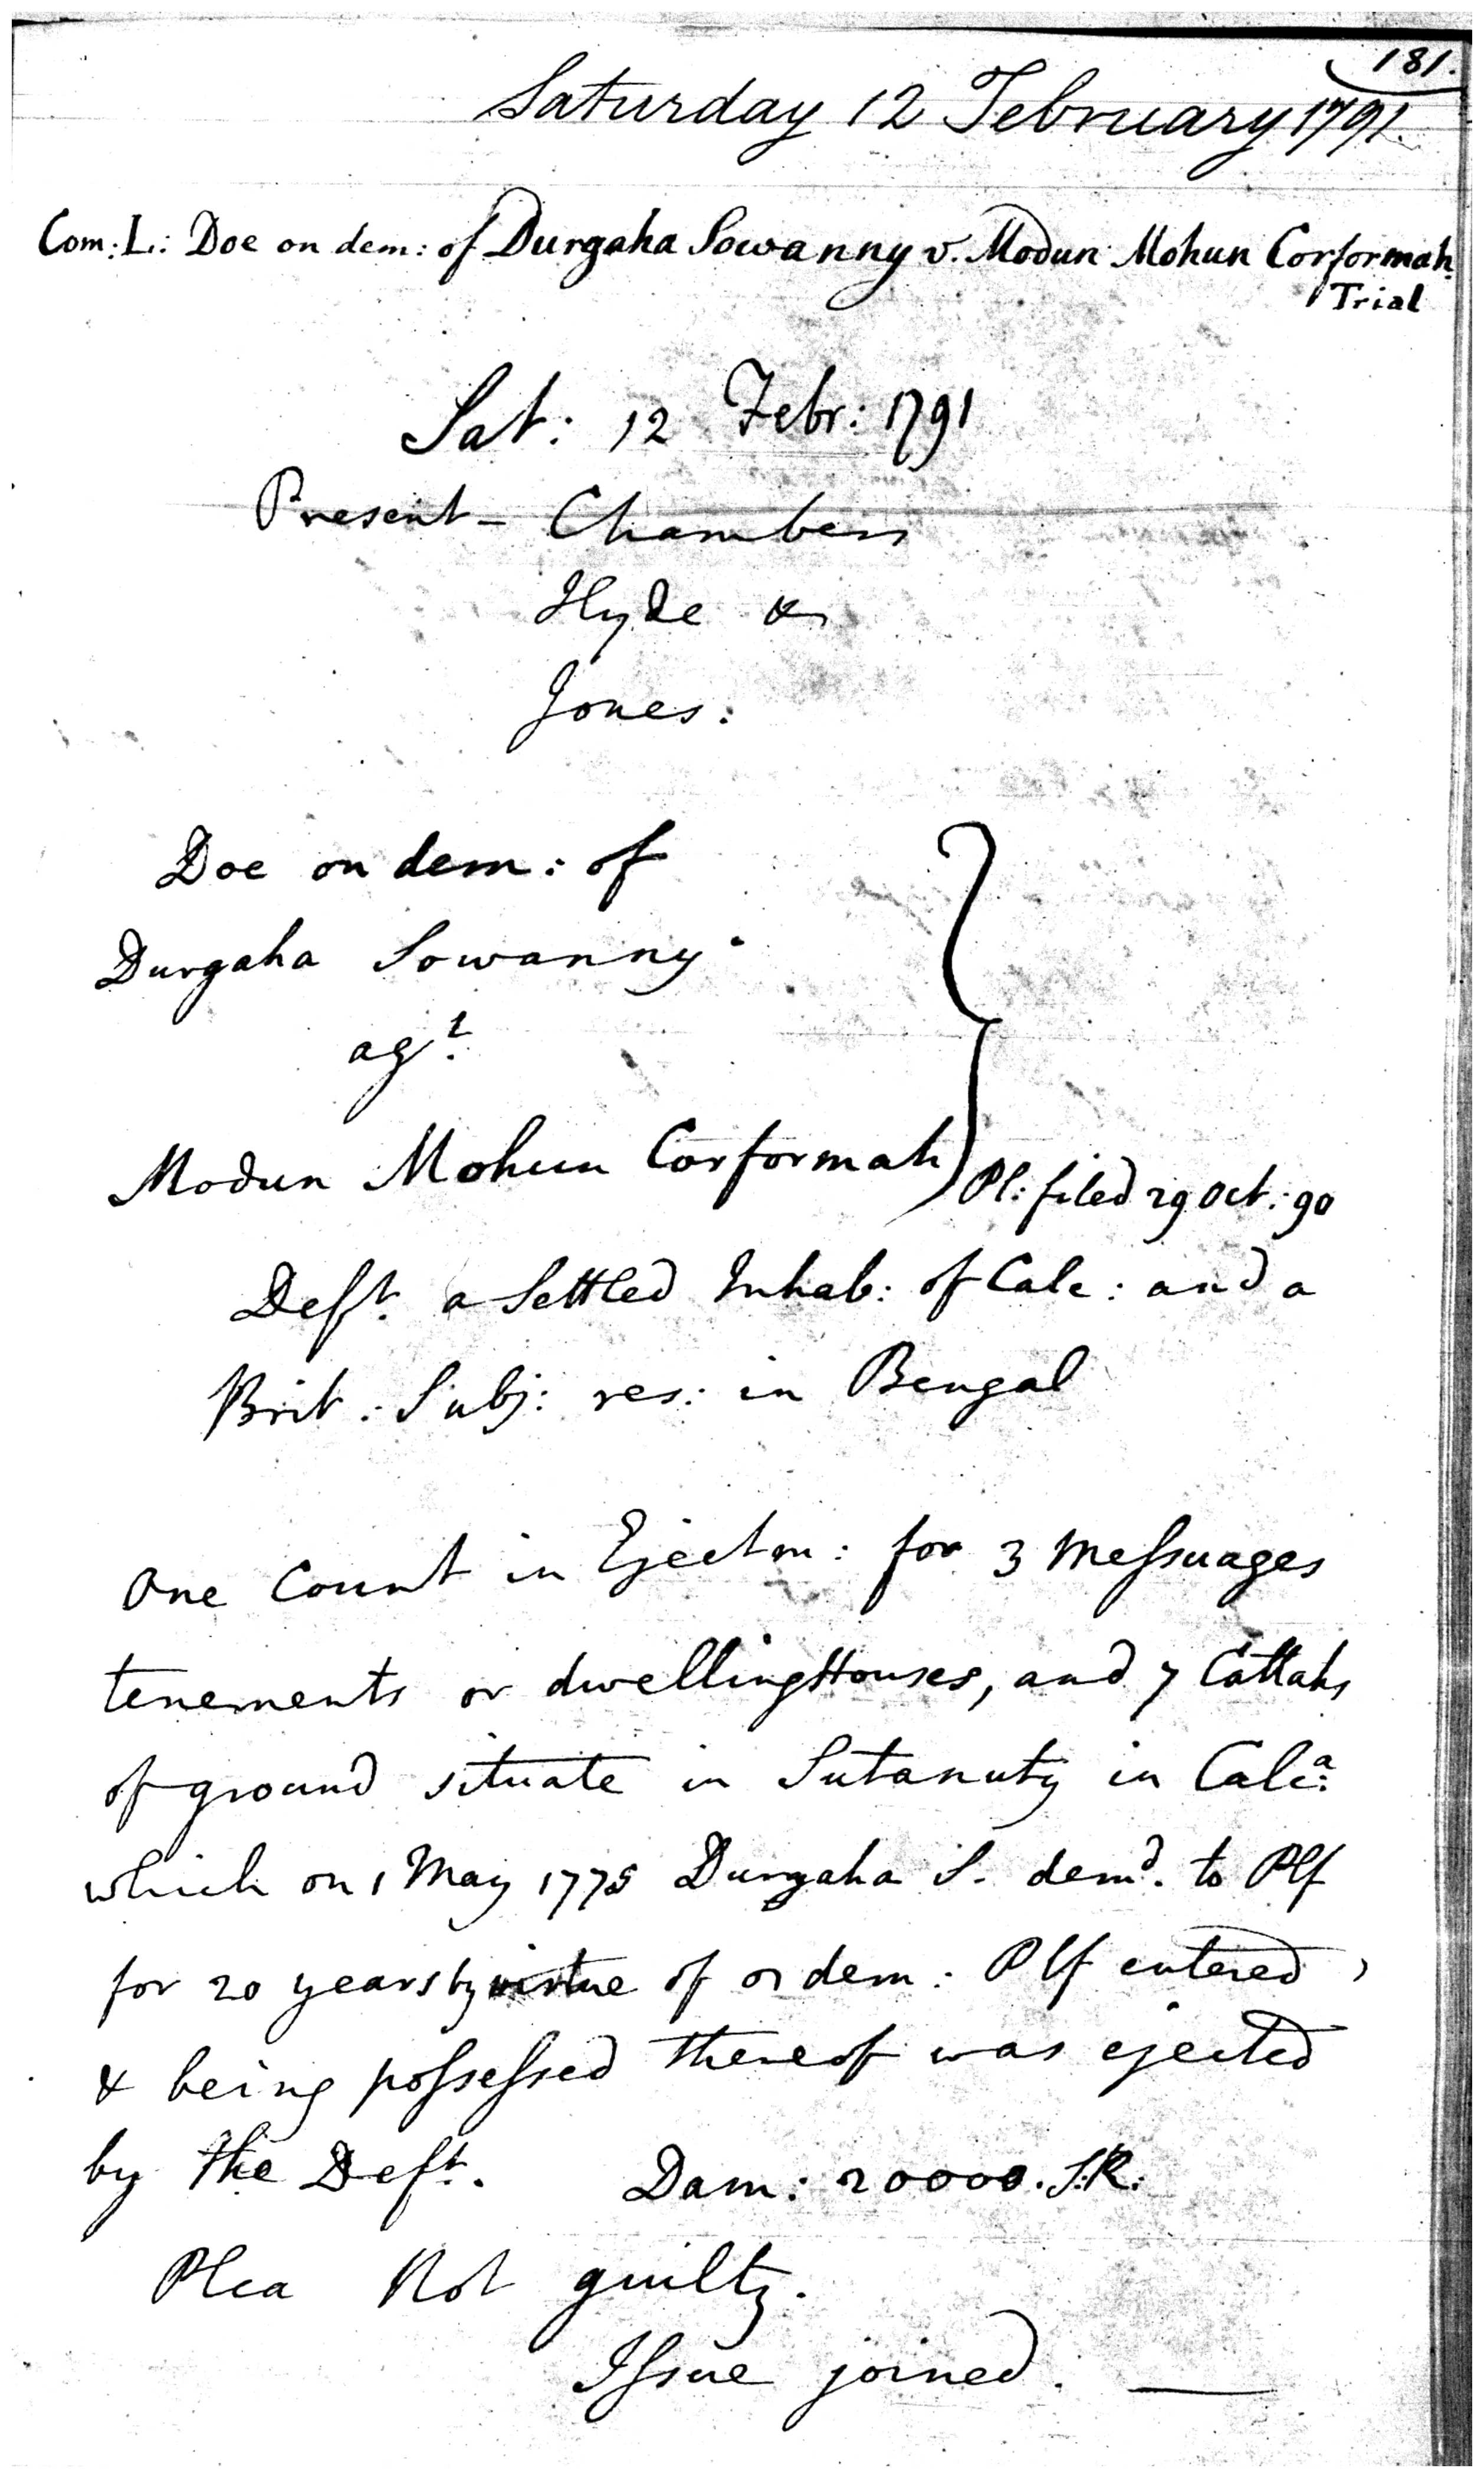 181.
Saturday 12 February 1791.
Com: L: Doe on dem: of Durgaha Sowanny v. Modun Mohun Corformah.
Trial
Sat: 12 Febr: 1791
Present - Chambers
Hyde &
Jones:
Doe on dem: of
Durgaha Sowanny
agt.
Modun Mohun Corformah
Pl: filed 29 Oct: 90
Deft. a Settled Inhab: of Calc: and a
Brit: Subj: res: in Bengal
One Count in Ejectm: for 3 Messuages
tenements or dwellingHouses, and 7 Cattahs
of ground situate in Sutanuty in Calca:
which on 1 May 1775 Durgaha S. demd. to Plf
for 20 years by virtue of dem: Plf entered,
& being possessed thereof was ejected
by the Deft. Dam: 20000. S.R:
Plea Not guilty.
Issue joined.